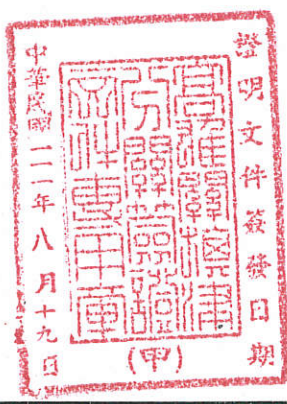 證明文件簽發日期
高雄關旗津
分關簽證
文件專用章
(甲)
中華民國一一一年八月十九日